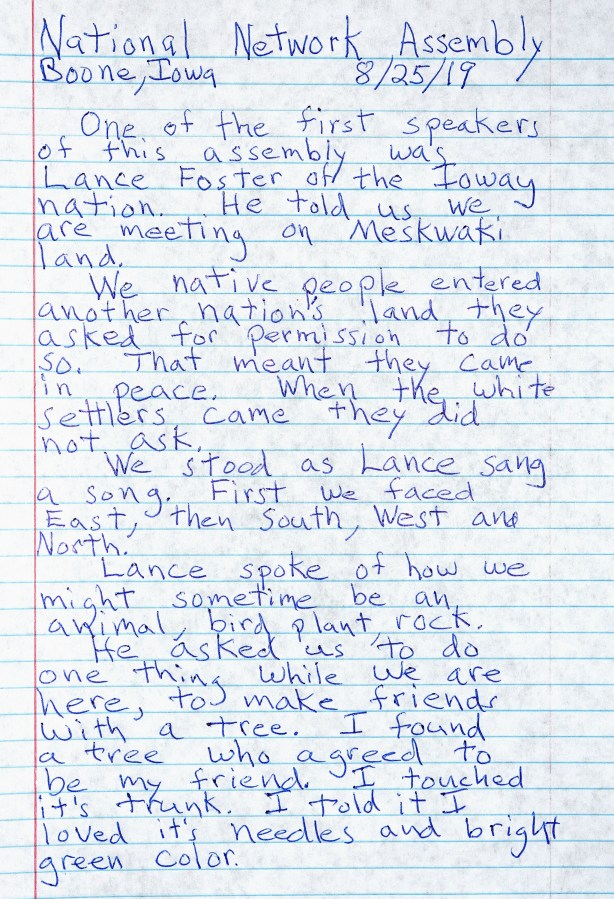 National Network Assembly
Boone, Iowa 8/25/19
One of the first speakers
of this assembly was
Lance Foster of the Ioway
nation. He told us we
are meeting on Meskwaki
land.
We native people entered
another nation's land they
asked for permission to do
so. That meant they came
in peace. When the white
settlers came they did
not ask.
We stood as Lance sang
a song. First we faced
East, then South, West and
North.
Lance spoke of how we
might sometime be an
animal, bird plant, rock.
He asked us to do
one thing while we are
here, to make friends
with a tree. I found
a tree who agreed to
be my friend. I touched
it's trunk. I told it I
loved it's needles and bright
green color.